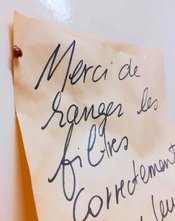 Merci de
ranger les
filtres
Correctement